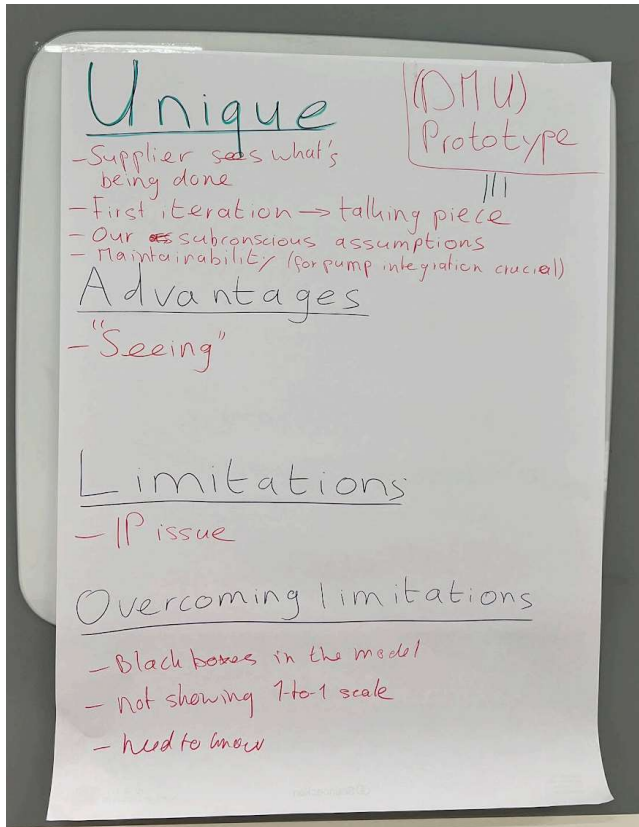 Unique
(DMU)
Prototype
- Supplier sees what's
being done
- First iteration → talking piece
- Our subconscious assumptions
- Maintainability (for pump integration crucial)
Advantages
- "Seeing"
Limitations
- IP issue
Overcoming limitations
- Black boxes in the model
- not showing 1-to-1 scale
- need to know